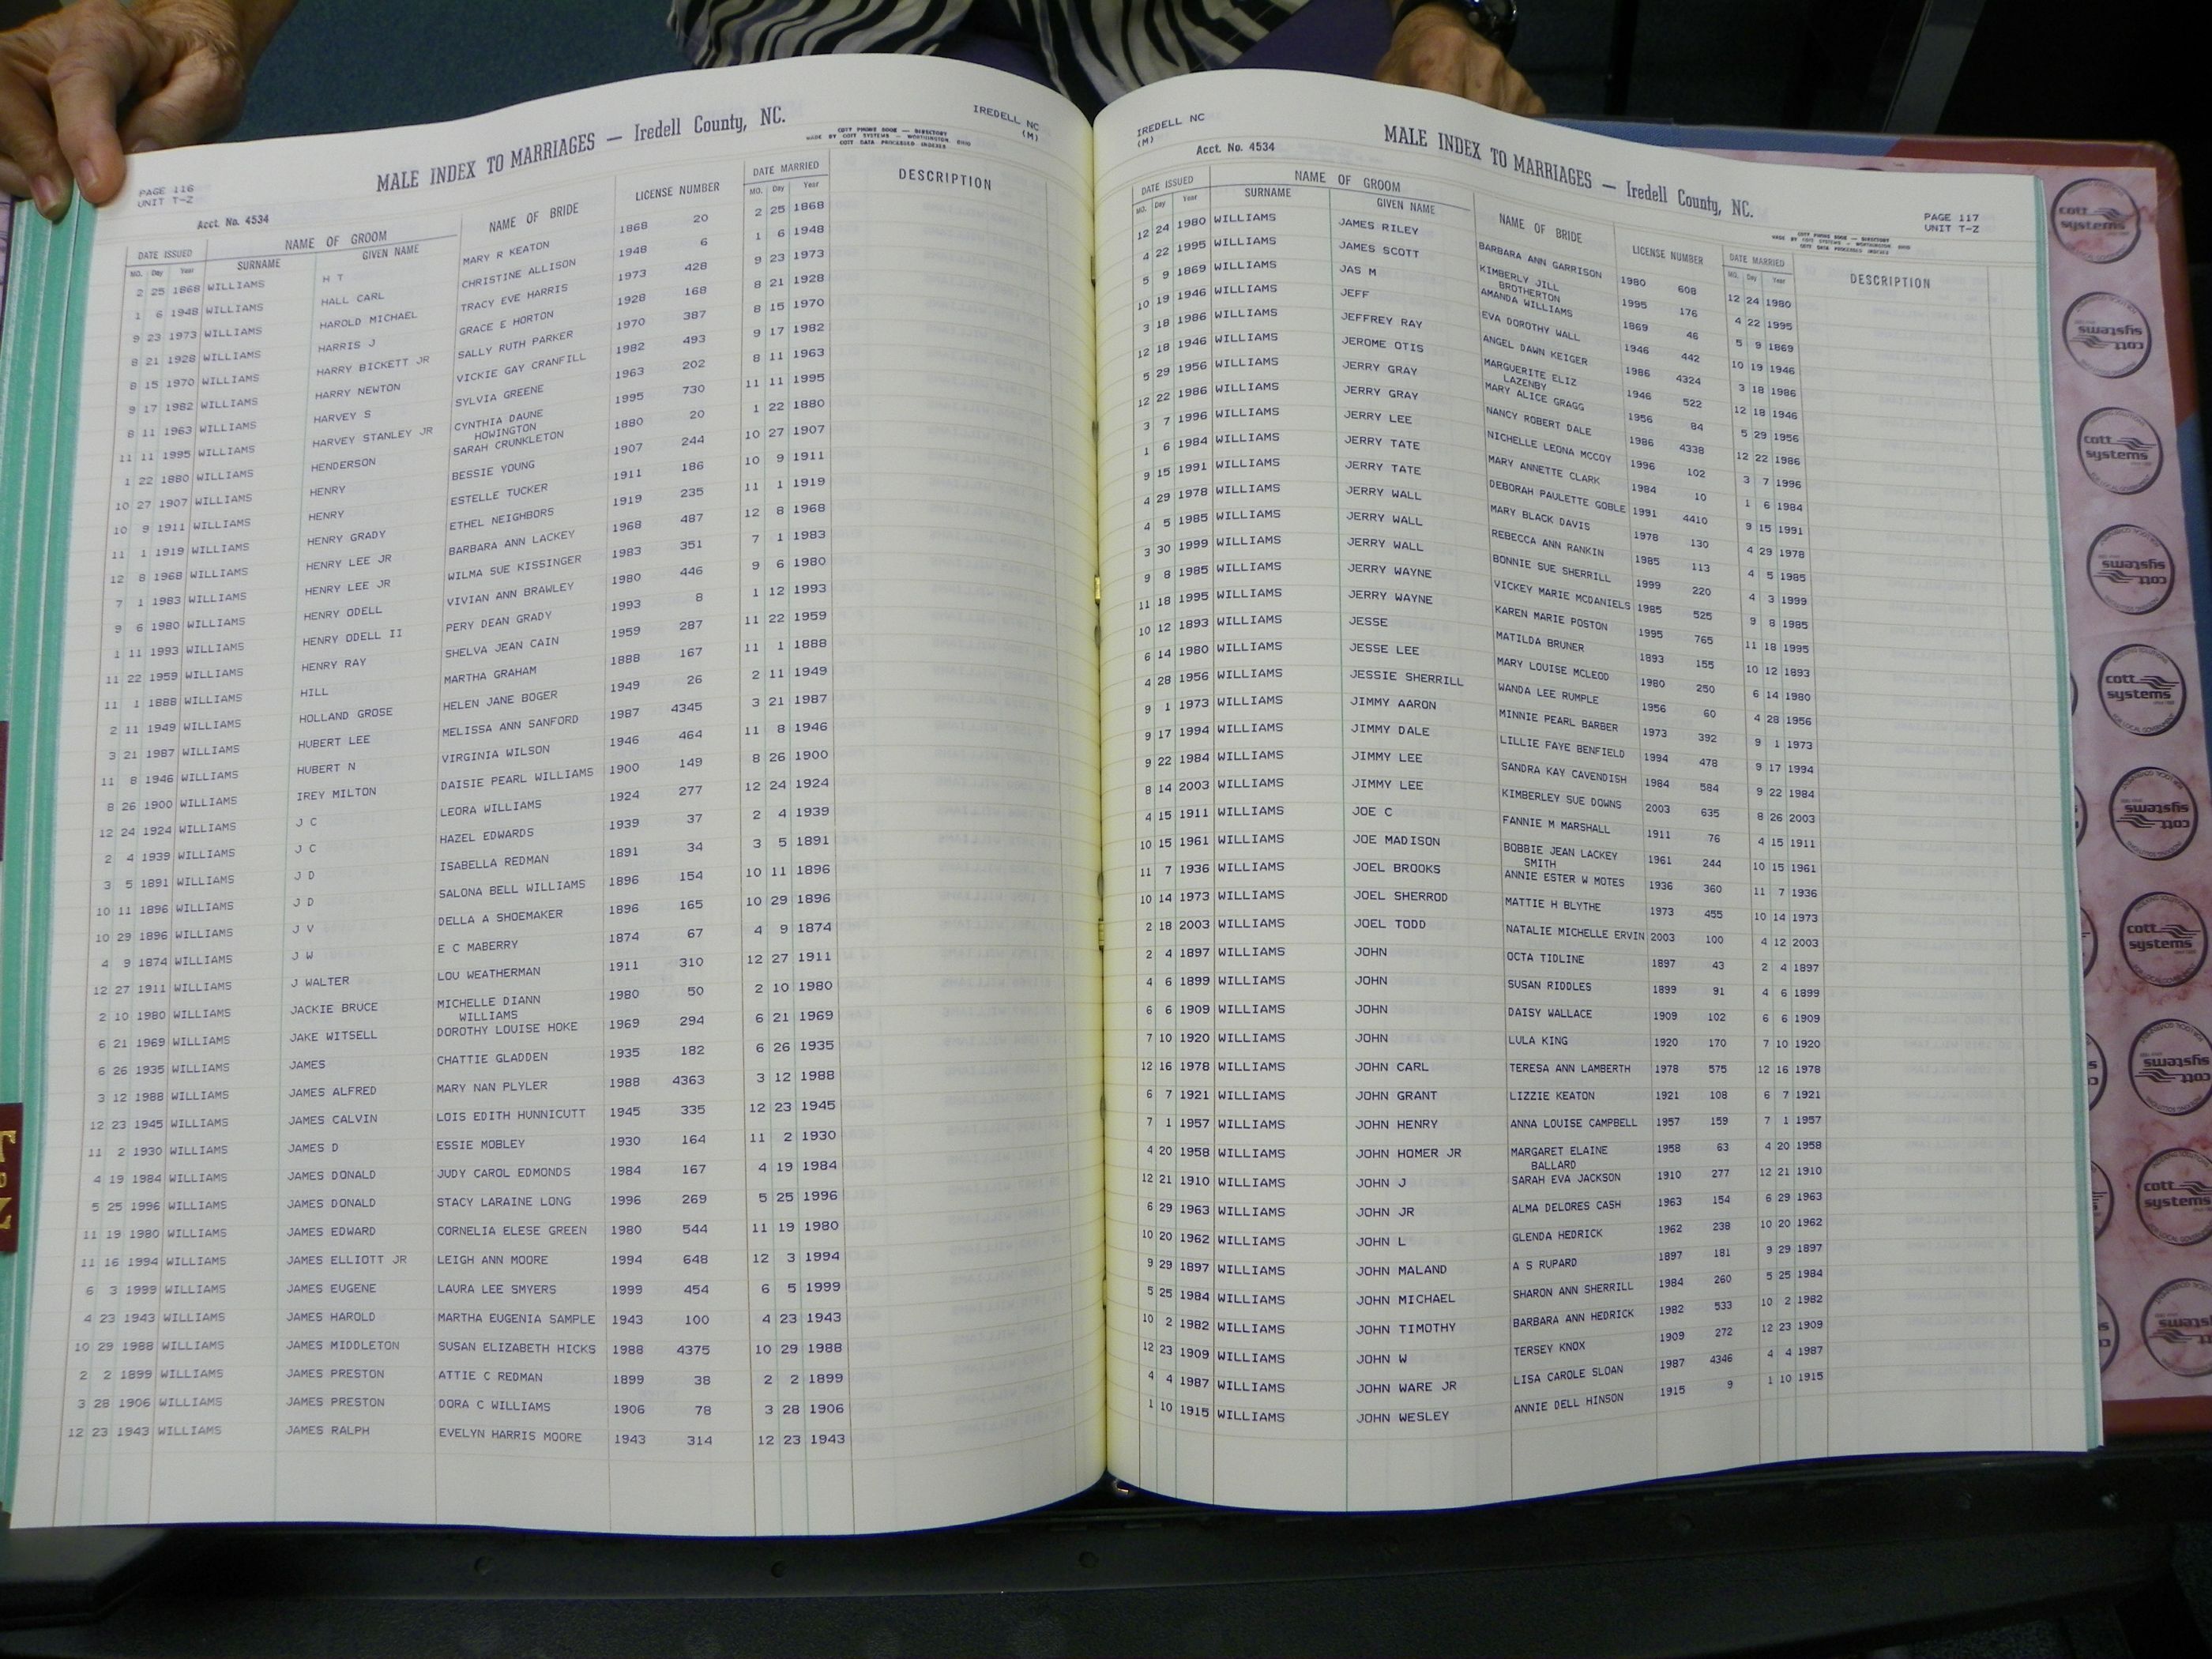 PAGE 116
UNIT T-Z
MALE INDEX TO MARRIAGES — Iredell County, NC.
COTT PHONE BOOK — DIRECTORY
MADE BY COTT SYSTEMS — WORTHINGTON OHIO
COTT DATA PROCESSED INDEXES
IREDELL NC
(M)
Acct. No. 4534
DATE ISSUED NAME OF GROOM NAME OF BRIDE LICENSE NUMBER DATE MARRIED DESCRIPTION
MO. Day Year SURNAME GIVEN NAME MO. Day Year
2 25 1868 WILLIAMS H T MARY R KEATON 1868 20 2 25 1868
1 6 1948 WILLIAMS HALL CARL CHRISTINE ALLISON 1948 6 1 6 1948
9 23 1973 WILLIAMS HAROLD MICHAEL TRACY EVE HARRIS 1973 428 9 23 1973
8 21 1928 WILLIAMS HARRIS J GRACE E HORTON 1928 168 8 21 1928
8 15 1970 WILLIAMS HARRY BICKETT JR SALLY RUTH PARKER 1970 387 8 15 1970
9 17 1982 WILLIAMS HARRY NEWTON VICKIE GAY CRANFILL 1982 493 9 17 1982
8 11 1963 WILLIAMS HARVEY S SYLVIA GREENE 1963 202 8 11 1963
11 11 1995 WILLIAMS HARVEY STANLEY JR CYNTHIA DAUNE 1995 730 11 11 1995
HOWINGTON
1 22 1880 WILLIAMS HENDERSON SARAH CRUNKLETON 1880 20 1 22 1880
10 27 1907 WILLIAMS HENRY BESSIE YOUNG 1907 244 10 27 1907
10 9 1911 WILLIAMS HENRY ESTELLE TUCKER 1911 186 10 9 1911
11 1 1919 WILLIAMS HENRY GRADY ETHEL NEIGHBORS 1919 235 11 1 1919
12 8 1968 WILLIAMS HENRY LEE JR BARBARA ANN LACKEY 1968 487 12 8 1968
7 1 1983 WILLIAMS HENRY LEE JR WILMA SUE KISSINGER 1983 351 7 1 1983
9 6 1980 WILLIAMS HENRY ODELL VIVIAN ANN BRAWLEY 1980 446 9 6 1980
1 11 1993 WILLIAMS HENRY ODELL II PERY DEAN GRADY 1993 8 1 12 1993
11 22 1959 WILLIAMS HENRY RAY SHELVA JEAN CAIN 1959 287 11 22 1959
11 1 1888 WILLIAMS HILL MARTHA GRAHAM 1888 167 11 1 1888
2 11 1949 WILLIAMS HOLLAND GROSE HELEN JANE BOGER 1949 26 2 11 1949
3 21 1987 WILLIAMS HUBERT LEE MELISSA ANN SANFORD 1987 4345 3 21 1987
11 8 1946 WILLIAMS HUBERT N VIRGINIA WILSON 1946 464 11 8 1946
8 26 1900 WILLIAMS IREY MILTON DAISIE PEARL WILLIAMS 1900 149 8 26 1900
12 24 1924 WILLIAMS J C LEORA WILLIAMS 1924 277 12 24 1924
2 4 1939 WILLIAMS J C HAZEL EDWARDS 1939 37 2 4 1939
3 5 1891 WILLIAMS J D ISABELLA REDMAN 1891 34 3 5 1891
10 11 1896 WILLIAMS J D SALONA BELL WILLIAMS 1896 154 10 11 1896
10 29 1896 WILLIAMS J V DELLA A SHOEMAKER 1896 165 10 29 1896
4 9 1874 WILLIAMS J W E C MABERRY 1874 67 4 9 1874
12 27 1911 WILLIAMS J WALTER LOU WEATHERMAN 1911 310 12 27 1911
2 10 1980 WILLIAMS JACKIE BRUCE MICHELLE DIANN 1980 50 2 10 1980
WILLIAMS
6 21 1969 WILLIAMS JAKE WITSELL DOROTHY LOUISE HOKE 1969 294 6 21 1969
6 26 1935 WILLIAMS JAMES CHATTIE GLADDEN 1935 182 6 26 1935
3 12 1988 WILLIAMS JAMES ALFRED MARY NAN PLYLER 1988 4363 3 12 1988
12 23 1945 WILLIAMS JAMES CALVIN LOIS EDITH HUNNICUTT 1945 335 12 23 1945
11 2 1930 WILLIAMS JAMES D ESSIE MOBLEY 1930 164 11 2 1930
4 19 1984 WILLIAMS JAMES DONALD JUDY CAROL EDMONDS 1984 167 4 19 1984
5 25 1996 WILLIAMS JAMES DONALD STACY LARAINE LONG 1996 269 5 25 1996
11 19 1980 WILLIAMS JAMES EDWARD CORNELIA ELESE GREEN 1980 544 11 19 1980
11 16 1994 WILLIAMS JAMES ELLIOTT JR LEIGH ANN MOORE 1994 648 12 3 1994
6 3 1999 WILLIAMS JAMES EUGENE LAURA LEE SMYERS 1999 454 6 5 1999
4 23 1943 WILLIAMS JAMES HAROLD MARTHA EUGENIA SAMPLE 1943 100 4 23 1943
10 29 1988 WILLIAMS JAMES MIDDLETON SUSAN ELIZABETH HICKS 1988 4375 10 29 1988
2 2 1899 WILLIAMS JAMES PRESTON ATTIE C REDMAN 1899 38 2 2 1899
3 28 1906 WILLIAMS JAMES PRESTON DORA C WILLIAMS 1906 78 3 28 1906
12 23 1943 WILLIAMS JAMES RALPH EVELYN HARRIS MOORE 1943 314 12 23 1943
IREDELL NC
(M)
Acct. No. 4534
MALE INDEX TO MARRIAGES — Iredell County, NC.
COTT PHONE BOOK — DIRECTORY
MADE BY COTT SYSTEMS — WORTHINGTON OHIO
COTT DATA PROCESSED INDEXES
PAGE 117
UNIT T-Z
DATE ISSUED NAME OF GROOM NAME OF BRIDE LICENSE NUMBER DATE MARRIED DESCRIPTION
MO. Day Year SURNAME GIVEN NAME MO. Day Year
12 24 1980 WILLIAMS JAMES RILEY BARBARA ANN GARRISON 1980 608 12 24 1980
4 22 1995 WILLIAMS JAMES SCOTT KIMBERLY JILL 1995 176 4 22 1995
BROTHERTON
5 9 1869 WILLIAMS JAS M AMANDA WILLIAMS 1869 46 5 9 1869
10 19 1946 WILLIAMS JEFF EVA DOROTHY WALL 1946 442 10 19 1946
3 18 1986 WILLIAMS JEFFREY RAY ANGEL DAWN KEIGER 1986 4324 3 18 1986
12 18 1946 WILLIAMS JEROME OTIS MARGUERITE ELIZ 1946 522 12 18 1946
LAZENBY
5 29 1956 WILLIAMS JERRY GRAY MARY ALICE GRAGG 1956 84 5 29 1956
12 22 1986 WILLIAMS JERRY GRAY NANCY ROBERT DALE 1986 4338 12 22 1986
3 7 1996 WILLIAMS JERRY LEE NICHELLE LEONA MCCOY 1996 102 3 7 1996
1 6 1984 WILLIAMS JERRY TATE MARY ANNETTE CLARK 1984 10 1 6 1984
9 15 1991 WILLIAMS JERRY TATE DEBORAH PAULETTE GOBLE 1991 4410 9 15 1991
4 29 1978 WILLIAMS JERRY WALL MARY BLACK DAVIS 1978 130 4 29 1978
4 5 1985 WILLIAMS JERRY WALL REBECCA ANN RANKIN 1985 113 4 5 1985
3 30 1999 WILLIAMS JERRY WALL BONNIE SUE SHERRILL 1999 220 4 3 1999
9 8 1985 WILLIAMS JERRY WAYNE VICKEY MARIE MCDANIELS 1985 525 9 8 1985
11 18 1995 WILLIAMS JERRY WAYNE KAREN MARIE POSTON 1995 765 11 18 1995
10 12 1893 WILLIAMS JESSE MATILDA BRUNER 1893 155 10 12 1893
6 14 1980 WILLIAMS JESSE LEE MARY LOUISE MCLEOD 1980 250 6 14 1980
4 28 1956 WILLIAMS JESSIE SHERRILL WANDA LEE RUMPLE 1956 60 4 28 1956
9 1 1973 WILLIAMS JIMMY AARON MINNIE PEARL BARBER 1973 392 9 1 1973
9 17 1994 WILLIAMS JIMMY DALE LILLIE FAYE BENFIELD 1994 478 9 17 1994
9 22 1984 WILLIAMS JIMMY LEE SANDRA KAY CAVENDISH 1984 584 9 22 1984
8 14 2003 WILLIAMS JIMMY LEE KIMBERLEY SUE DOWNS 2003 635 8 26 2003
4 15 1911 WILLIAMS JOE C FANNIE M MARSHALL 1911 76 4 15 1911
10 15 1961 WILLIAMS JOE MADISON BOBBIE JEAN LACKEY 1961 244 10 15 1961
SMITH
11 7 1936 WILLIAMS JOEL BROOKS ANNIE ESTER W MOTES 1936 360 11 7 1936
10 14 1973 WILLIAMS JOEL SHERROD MATTIE H BLYTHE 1973 455 10 14 1973
2 18 2003 WILLIAMS JOEL TODD NATALIE MICHELLE ERVIN 2003 100 4 12 2003
2 4 1897 WILLIAMS JOHN OCTA TIDLINE 1897 43 2 4 1897
4 6 1899 WILLIAMS JOHN SUSAN RIDDLES 1899 91 4 6 1899
6 6 1909 WILLIAMS JOHN DAISY WALLACE 1909 102 6 6 1909
7 10 1920 WILLIAMS JOHN LULA KING 1920 170 7 10 1920
12 16 1978 WILLIAMS JOHN CARL TERESA ANN LAMBERTH 1978 575 12 16 1978
6 7 1921 WILLIAMS JOHN GRANT LIZZIE KEATON 1921 108 6 7 1921
7 1 1957 WILLIAMS JOHN HENRY ANNA LOUISE CAMPBELL 1957 159 7 1 1957
4 20 1958 WILLIAMS JOHN HOMER JR MARGARET ELAINE 1958 63 4 20 1958
BALLARD
12 21 1910 WILLIAMS JOHN J SARAH EVA JACKSON 1910 277 12 21 1910
6 29 1963 WILLIAMS JOHN JR ALMA DELORES CASH 1963 154 6 29 1963
10 20 1962 WILLIAMS JOHN L GLENDA HEDRICK 1962 238 10 20 1962
9 29 1897 WILLIAMS JOHN MALAND A S RUPARD 1897 181 9 29 1897
5 25 1984 WILLIAMS JOHN MICHAEL SHARON ANN SHERRILL 1984 260 5 25 1984
10 2 1982 WILLIAMS JOHN TIMOTHY BARBARA ANN HEDRICK 1982 533 10 2 1982
12 23 1909 WILLIAMS JOHN W TERSEY KNOX 1909 272 12 23 1909
4 4 1987 WILLIAMS JOHN WARE JR LISA CAROLE SLOAN 1987 4346 4 4 1987
1 10 1915 WILLIAMS JOHN WESLEY ANNIE DELL HINSON 1915 9 1 10 1915
cott
systems
cott
systems
cott
systems
cott
systems
cott
systems
cott
systems
cott
systems
cott
systems
cott
systems
cott
systems